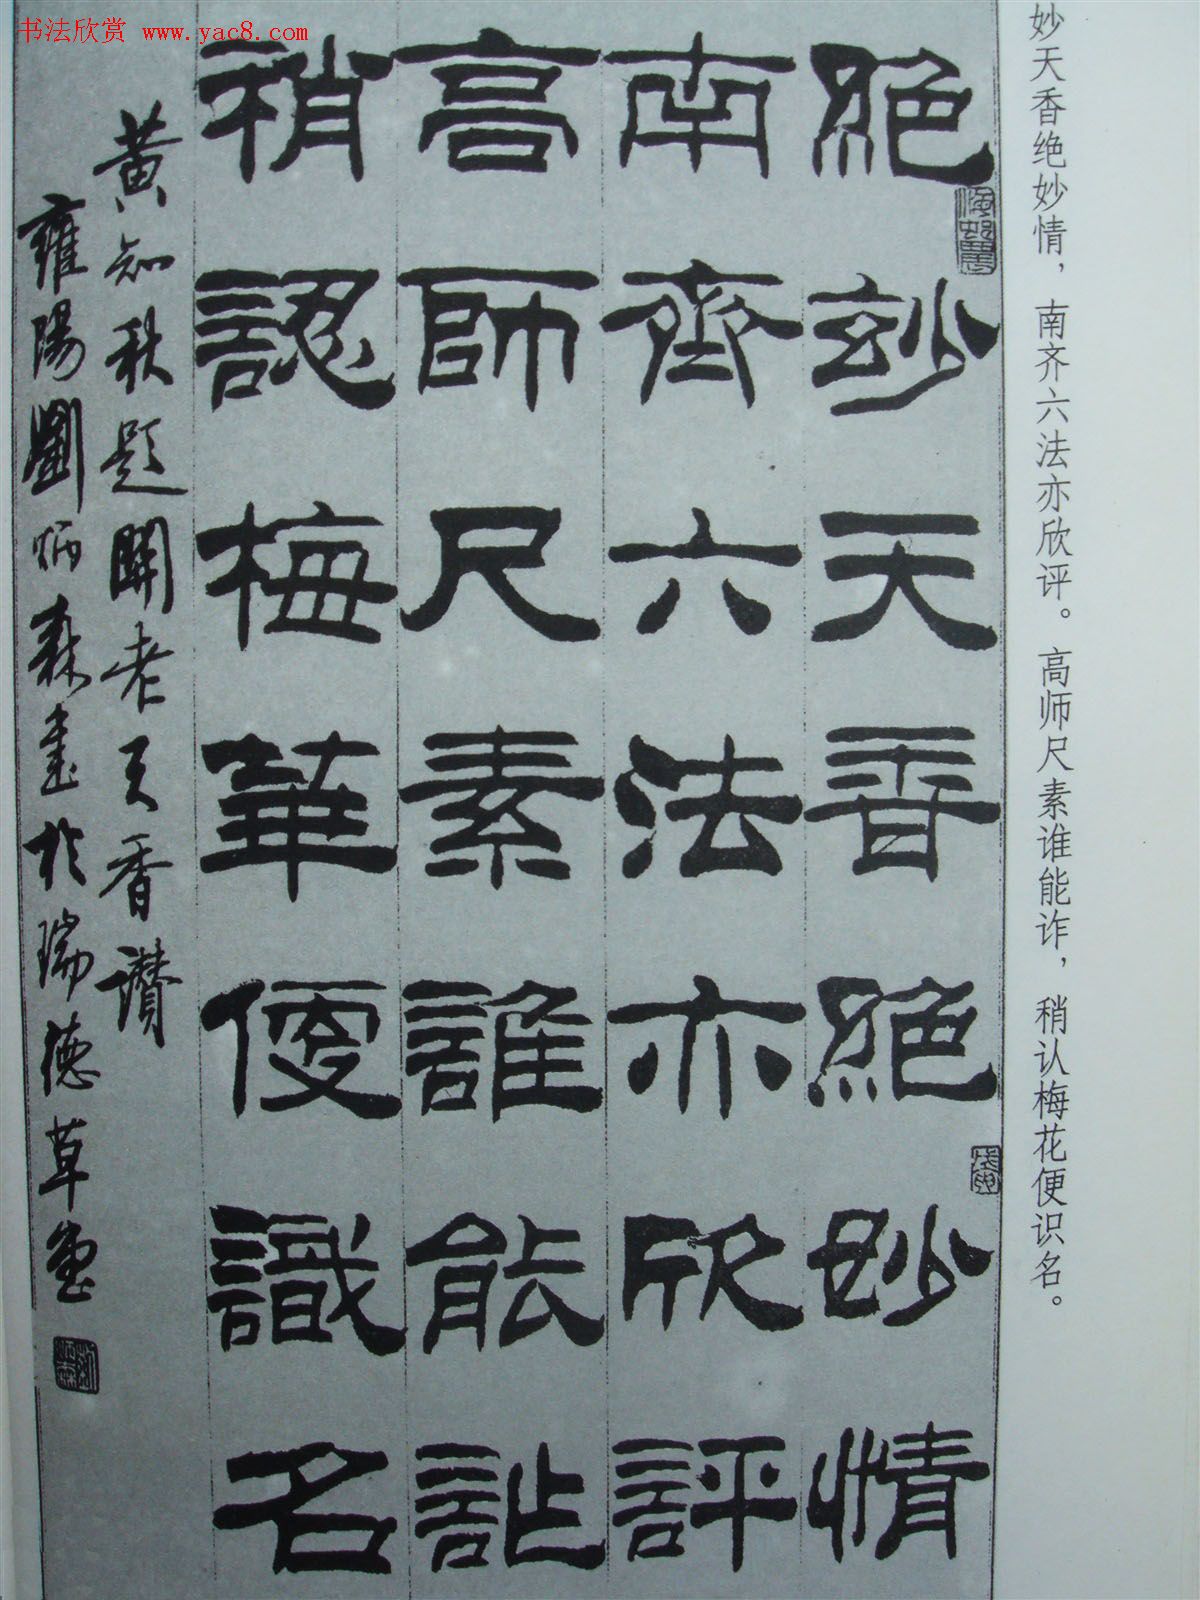 书法欣赏 www.yac8.com
妙天香绝妙情，南齐六法亦欣评。高师尺素谁能诈，稍认梅花便识名。
絶妙天香絶妙情
南齊六法亦欣評
高師尺素誰能詐
稍認梅華便識名
黄知秋題關老天香讚
雍陽劉炳森書於瑞德草堂